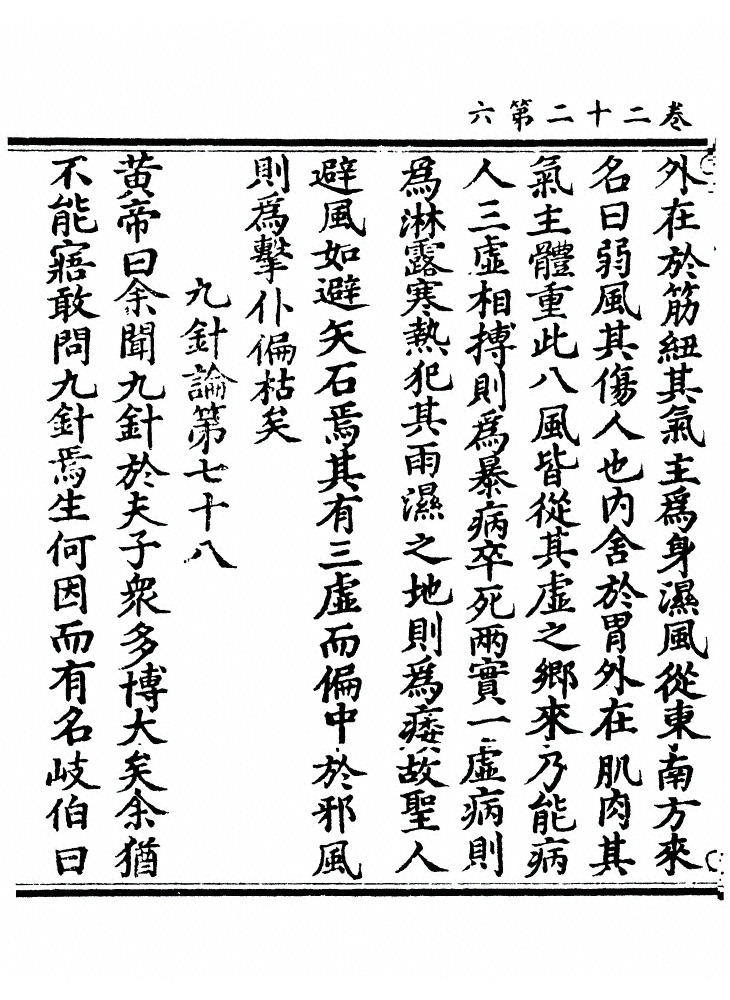 卷二十二第六
外在於筋紐其氣主爲身濕風從東南方來
名曰弱風其傷人也内舍於胃外在肌肉其
氣主體重此八風皆從其虛之鄉來乃能病
人三虛相搏則爲暴病卒死兩實一虛病則
爲淋露寒熱犯其雨濕之地則爲痿故聖人
避風如避矢石焉其有三虛而偏中於邪風
則爲擊仆偏枯矣
九針論第七十八
黃帝曰余聞九針於夫子衆多博大矣余猶
不能寤敢問九針焉生何因而有名岐伯曰